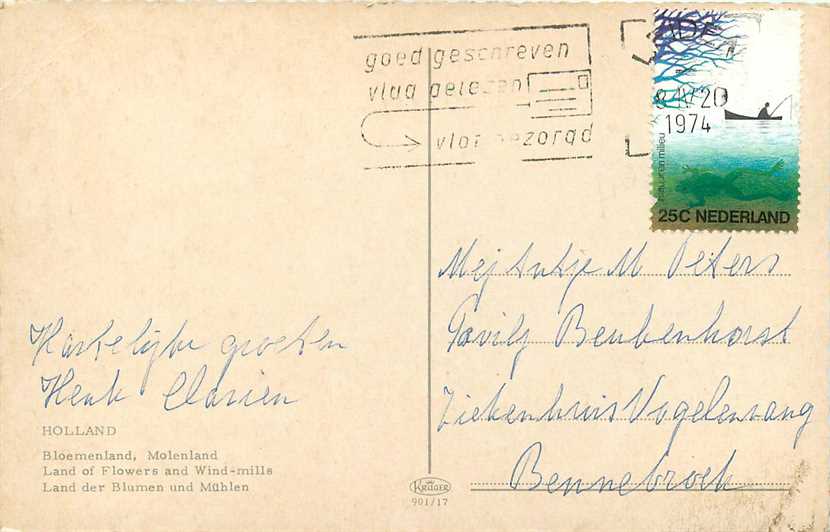 goed geschreven
vlug gelezen
vlot bezorgd
8 IV 20
1974
natuur en milieu
25C NEDERLAND
Mej Antje M Peters
Pavilj Beukenhorst
Ziekenhuis Vogelenzang
Bennebroek
Hartelijke groeten
Henk Clarien
HOLLAND
Bloemenland, Molenland
Land of Flowers and Wind-mills
Land der Blumen und Mühlen
KRÜGER
901/17